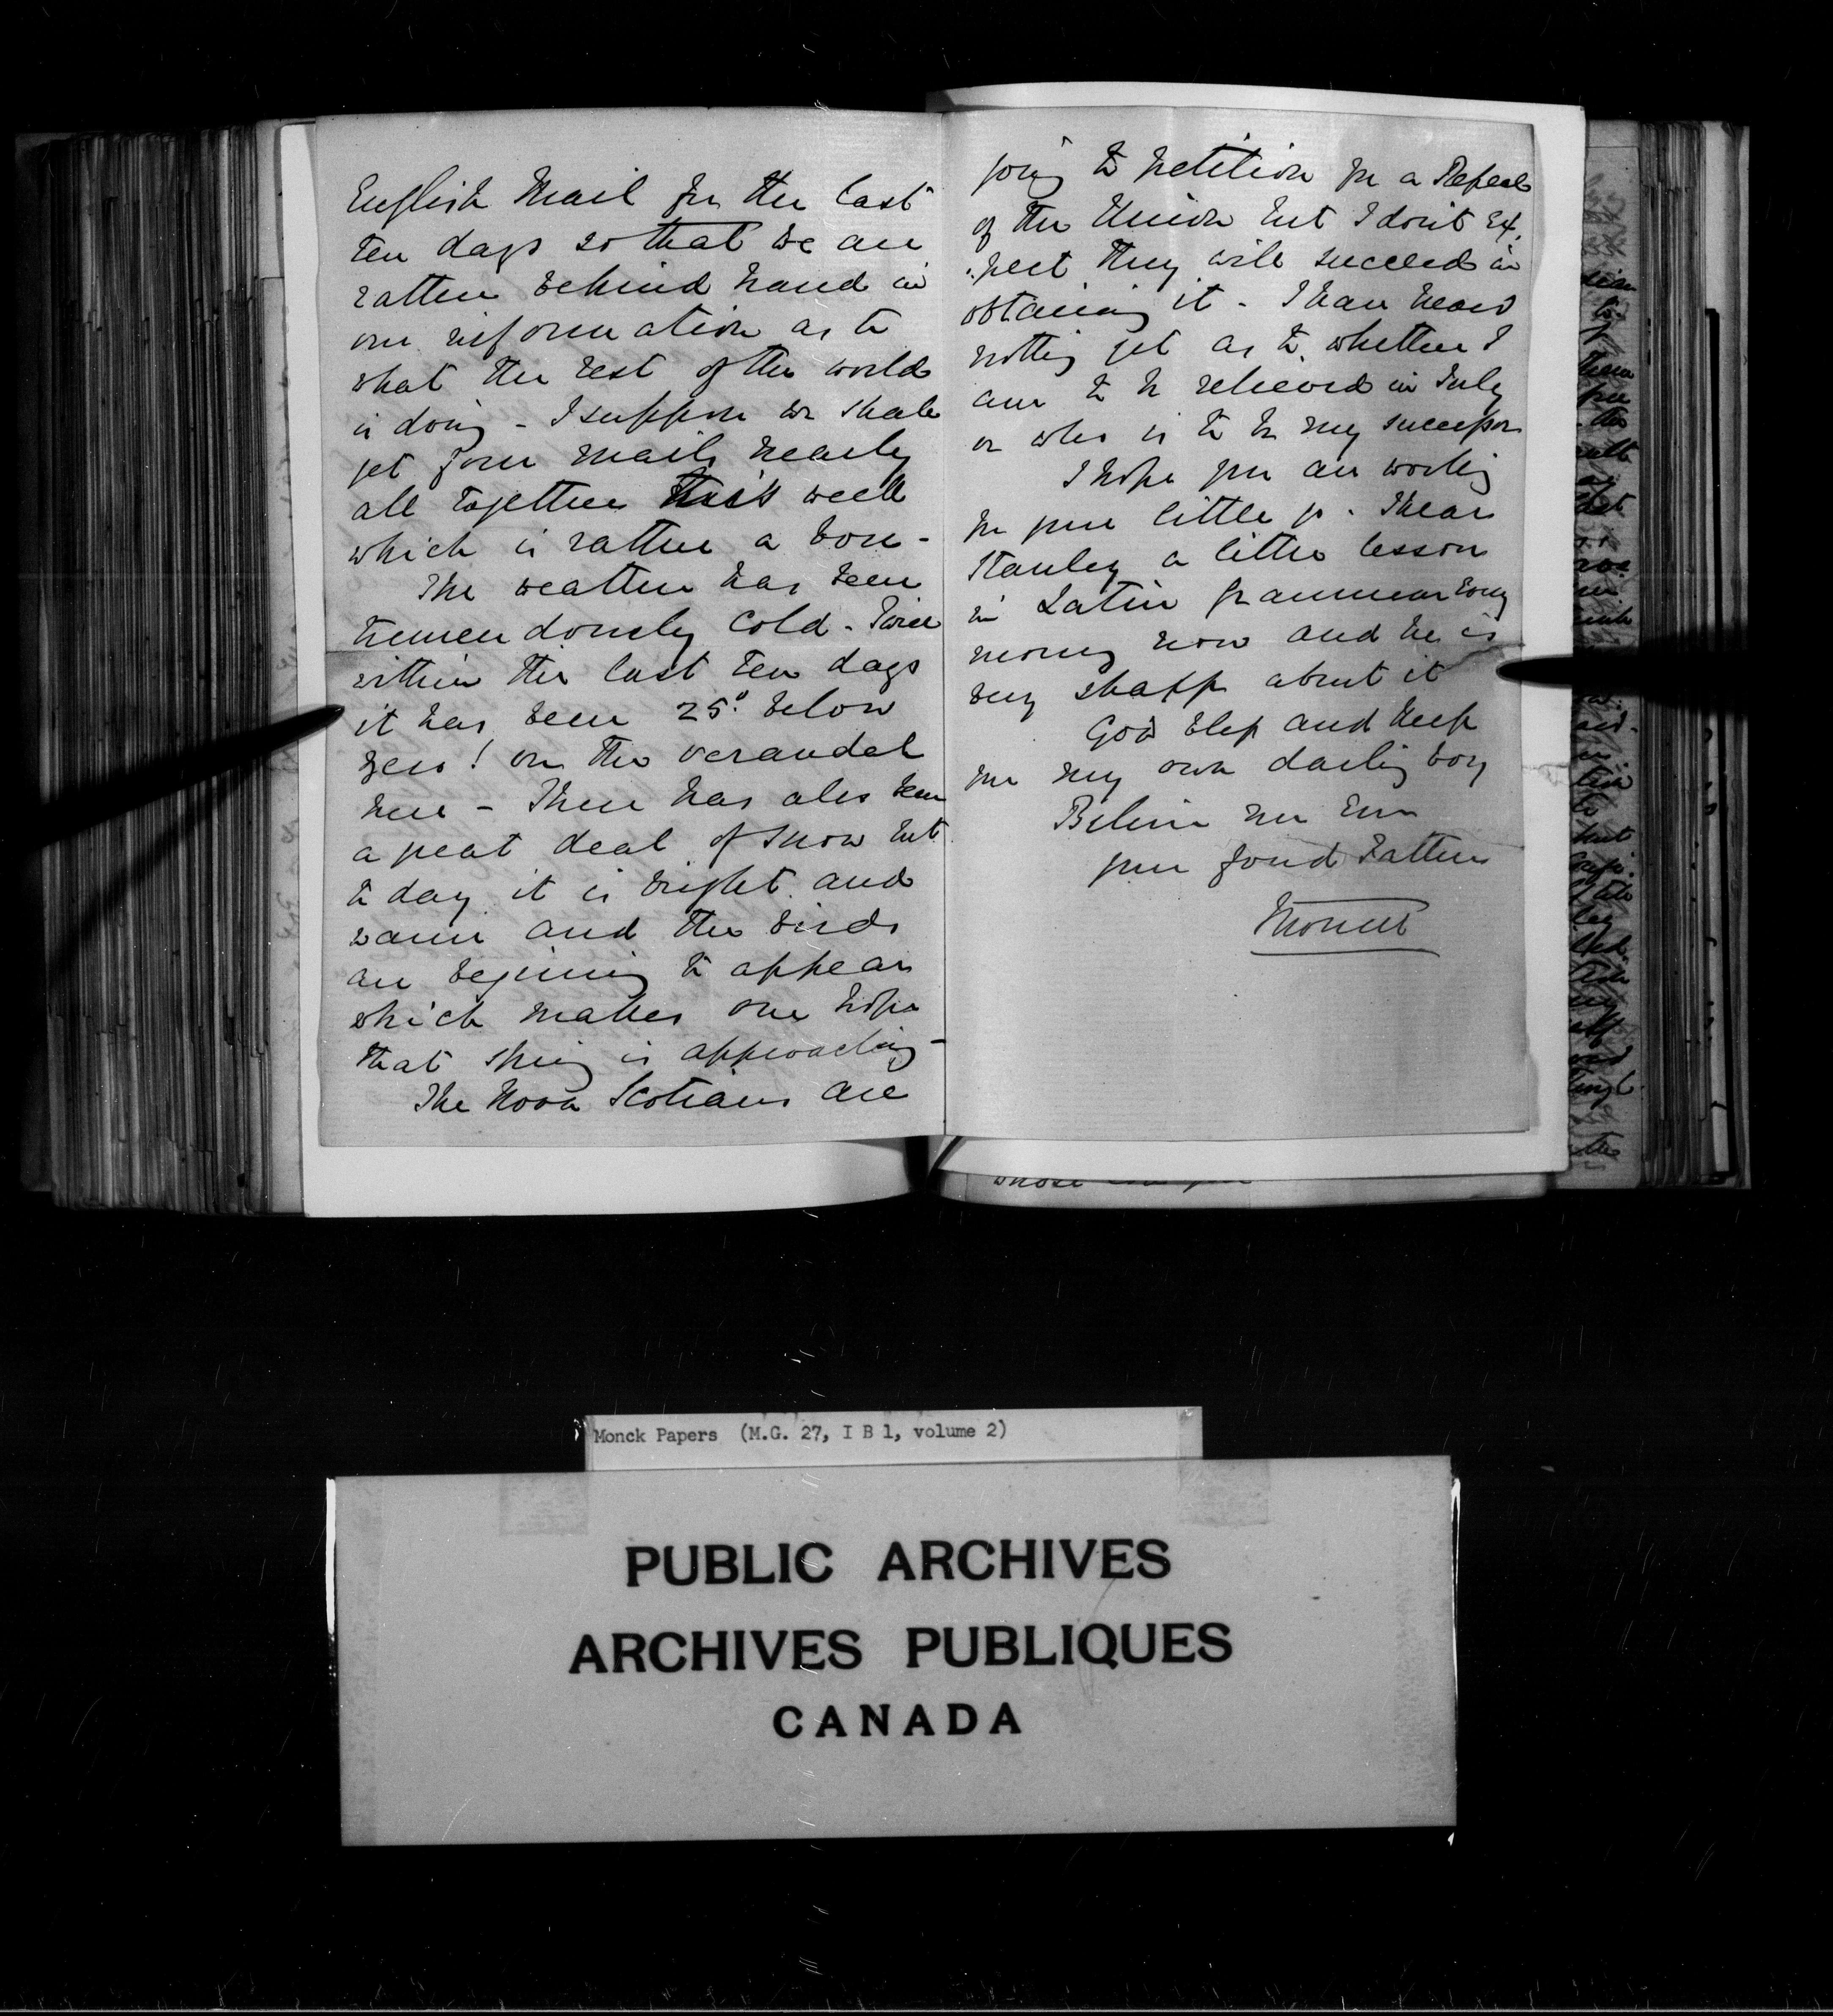 English Mail for the last
ten days so that we are
rather behind hand in
our information as to
what the rest of the world
is doing - I suppose we shall
get four mails nearly
all together this week
which is rather a bore -
The weather has been
tremendously cold - Twice
within the last ten days
it has been 25° below
zero! on the verandah
here - There has also been
a great deal of snow but
to day it is bright and
warm and the birds
are beginning to appear
which makes one hope
that spring is approaching -
The Nova Scotians are
going to petition for a Repeal
of the Union but I don't ex
:pect they will succeed in
obtaining it - I have heard
nothing yet as to whether I
am to be relieved in July
or who is to be my successor
I hope you are working
for your little go. I hear
Stanley a little lesson
in Latin grammar every
morning now and he is
very sharp about it
God bless and keep
you my own darling boy
Believe me ever
your fond Father
Monck
Monck Papers (M.G. 27, I B 1, volume 2)
PUBLIC ARCHIVES
ARCHIVES PUBLIQUES
CANADA